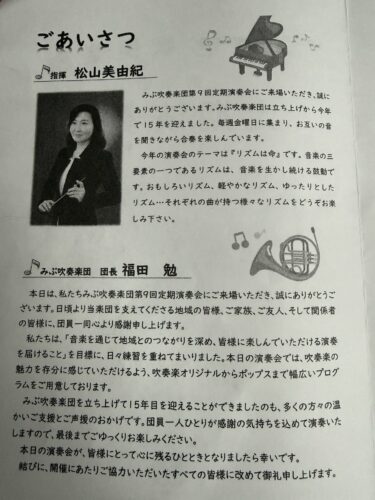 ごあいさつ
指揮 松山美由紀
みぶ吹奏楽団第9回定期演奏会にご来場いただき、誠に
ありがとうございます。みぶ吹奏楽団は立ち上げから今年
で15年を迎えました。毎週金曜日に集まり、お互いの音
を聞きながら合奏を楽しんでいます。
今年の演奏会のテーマは『リズムは命』です。音楽の三
要素の一つであるリズムは、音楽を生かし続ける鼓動で
す。おもしろいリズム、軽やかなリズム、ゆったりとした
リズム…それぞれの曲が持つ様々なリズムをどうぞお楽
しみ下さい。
みぶ吹奏楽団 団長 福田 勉
本日は、私たちみぶ吹奏楽団第9回定期演奏会にご来場いただき、誠にありがとうご
ざいます。日頃より当楽団を支えてくださる地域の皆様、ご家族、ご友人、そして関係者
の皆様に、団員一同心より感謝申し上げます。
私たちは、「音楽を通じて地域とのつながりを深め、皆様に楽しんでいただける演奏
を届けること」を目標に、日々練習を重ねてまいりました。本日の演奏会では、吹奏楽の
魅力を存分に感じていただけるよう、吹奏楽オリジナルからポップスまで幅広いプログ
ラムをご用意しております。
みぶ吹奏楽団を立ち上げて15年目を迎えることができましたのも、多くの方々の温
かいご支援とご声援のおかげです。団員一人ひとりが感謝の気持ちを込めて演奏いた
しますので、最後までごゆっくりお楽しみください。
本日の演奏会が、皆様にとって心に残るひとときとなりましたら幸いです。
結びに、開催にあたりご協力いただいたすべての皆様に改めて御礼申し上げます。